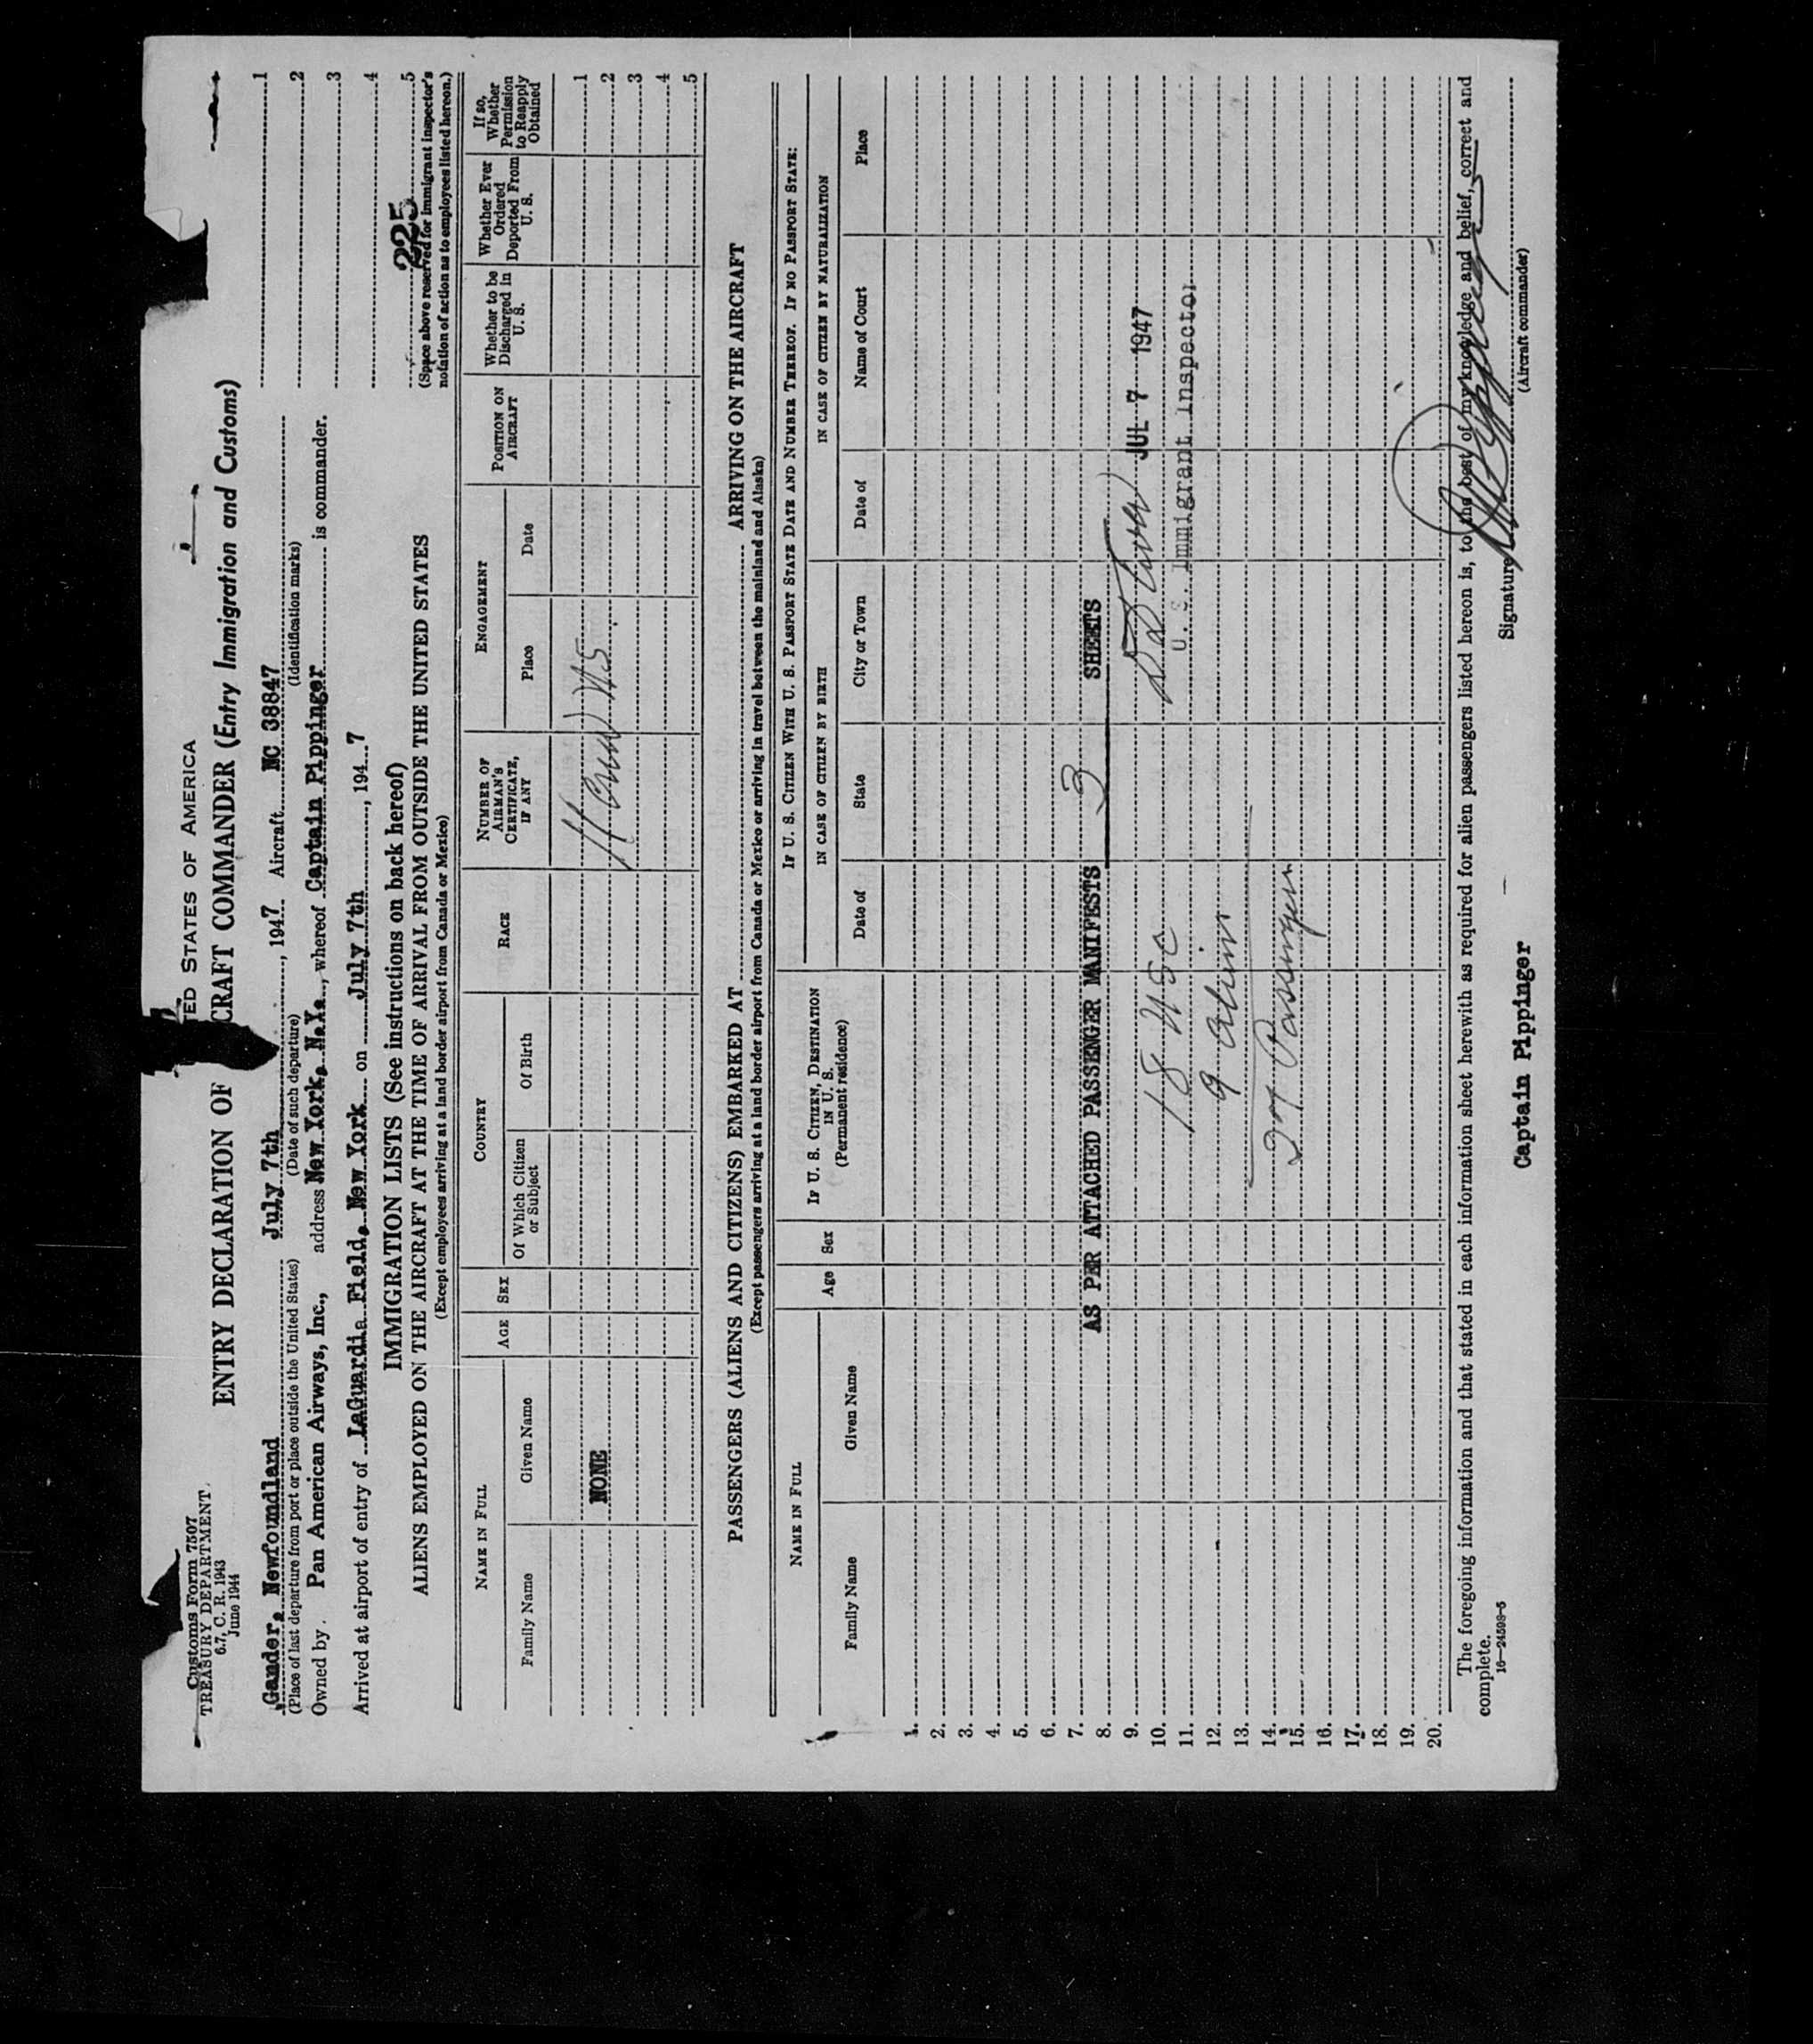 Customs Form 7507
TREASURY DEPARTMENT
6.7, C. R. 1943
June 1944
TED STATES OF AMERICA
ENTRY DECLARATION OF CRAFT COMMANDER (Entry Immigration and Customs)
Gander, Newfoundland July 7th, 1947 Aircraft NC 38847
(Place of last departure from port or place outside the United States) (Date of such departure) (Identification marks)
Owned by Pan American Airways, Inc., address New York, N.Y., whereof Captain Pippinger is commander.
Arrived at airport of entry of LaGuardia Field, New York on July 7th, 1947
1
2
3
4
5
225
(Space above reserved for immigrant inspector's
notation of action as to employees listed hereon.)
IMMIGRATION LISTS (See instructions on back hereof)
ALIENS EMPLOYED ON THE AIRCRAFT AT THE TIME OF ARRIVAL FROM OUTSIDE THE UNITED STATES
(Except employees arriving at a land border airport from Canada or Mexico)
NAME IN FULL
Family Name
Given Name
AGE
SEX
COUNTRY
Of Which Citizen or Subject
Of Birth
RACE
NUMBER OF AIRMAN'S CERTIFICATE, IF ANY
ENGAGEMENT
Place
Date
POSITION ON AIRCRAFT
Whether to be Discharged in U. S.
Whether Ever Ordered Deported From U. S.
If so, Whether Permission to Reapply Obtained
1
NONE 2
3
4
5
PASSENGERS (ALIENS AND CITIZENS) EMBARKED AT ARRIVING ON THE AIRCRAFT
(Except passengers arriving at a land border airport from Canada or Mexico or arriving in travel between the mainland and Alaska)
NAME IN FULL
Family Name
Given Name
Age
Sex
IF U. S. CITIZEN, DESTINATION IN U. S.
(Permanent residence)
IF U. S. CITIZEN WITH U. S. PASSPORT STATE DATE AND NUMBER THEREOF. IF NO PASSPORT STATE:
IN CASE OF CITIZEN BY BIRTH
IN CASE OF CITIZEN BY NATURALIZATION
Date of
State
City or Town
Date of
Name of Court
Place
1.
2.
3.
4.
5.
6.
7.
8. AS PER ATTACHED PASSENGER MANIFESTS 3 SHEETS
9. JUL 7 1947
10. 18 USC
11. U. S. Immigrant Inspector
12. 9 Aliens
13.
14.
15. 27 Passengers
16.
17.
18.
19.
20.
The foregoing information and that stated in each information sheet herewith as required for alien passengers listed hereon is, to the best of my knowledge and belief, correct and
complete.
16—24598-5
Captain Pippinger
Signature
(Aircraft commander)